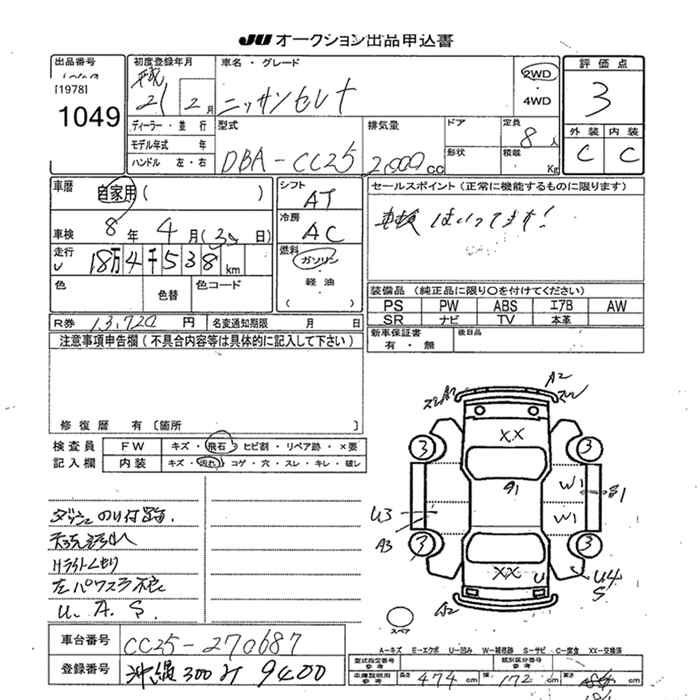 JU オークション出品申込書
出品番号
[1978]
1049
初度登録年月
平成
21 2 月
ディーラー・並 行
モデル年式 年
ハンドル 左・右
車名・グレード
ニッサンセレナ
2WD
・
4WD
型式
DBA-CC25
排気量
2,000 cc
ドア
形状
定員
8 人
積載
Kg
評価点
3
外装 内装
C C
車歴
自家用 ( )
車検 8 年 4 月 ( 日)
走行 18万4千538 km
色
色替
色コード
シフト
AT
冷房
AC
燃料
ガソリン
・
軽油
( )
R券 13,720 円 名変通知期限 月 日
セールスポイント (正常に機能するものに限ります)
車検 はいってます!
装備品 (純正品に限り○を付けてください)
PS PW ABS エアB AW
SR ナビ TV 本革
新車保証書
有・無
後日品
注意事項申告欄 (不具合内容等は具体的に記入して下さい)
修復歴 有 〔箇所 〕
検査員
記入欄
FW キズ・飛石・ヒビ割・リペア跡・×要
内装 キズ・汚れ・コゲ・穴・スレ・キレ・破レ
ダッシュのり付跡.
Hライトくもり
左パワスラ不良
U. A. S.
A2
XX
3 3
A1
W1
W1
U3
A3
3 3
XX U
U4
S
A2
スペア
A-キズ E-エクボ U-凹み W-補修跡 S-サビ C-腐食 XX-交換済
車台番号 CC25-270687
登録番号 沖縄 300 み 9400
型式指定番号
参考
類別区分番号
参考
車庫証明用
参考
長さ 474 cm 幅 172 cm 高さ cm